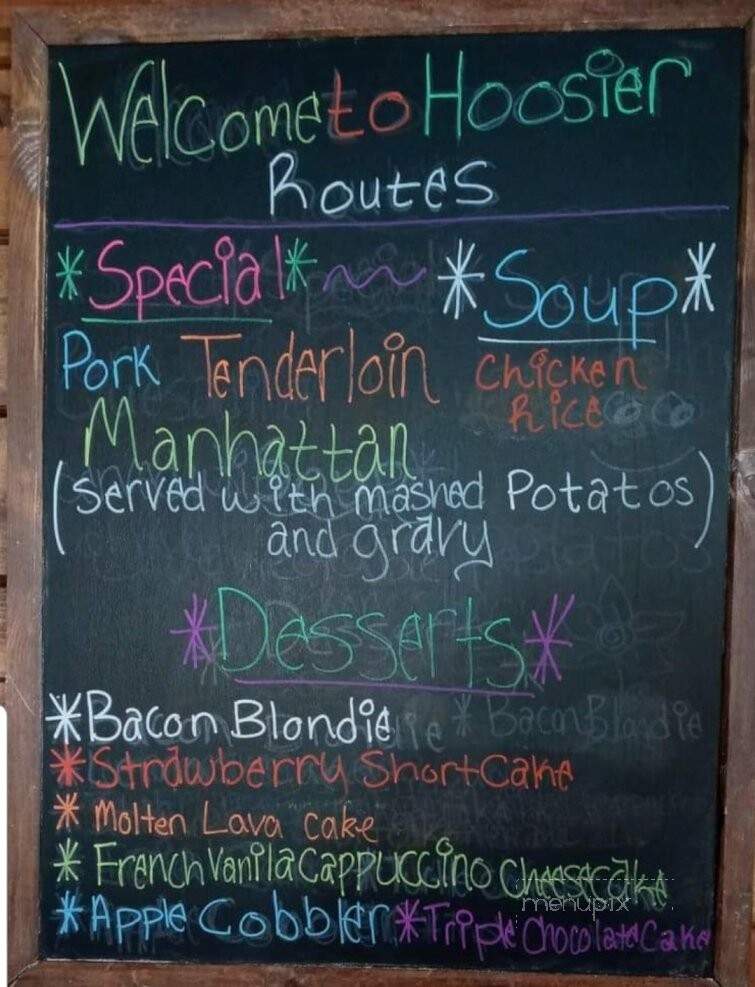 Welcome to Hoosier
Routes
*Special* *Soup*
Pork Tenderloin Chicken
Manhattan Rice
(Served with mashed Potatos)
and gravy
*Desserts*
*Bacon Blondie * Bacon Blondie
*Strawberry ShortCake
* Molten Lava cake
*French Vanila Cappuccino Cheesecake
menupix
*Apple Cobbler *Triple Chocolate Cake